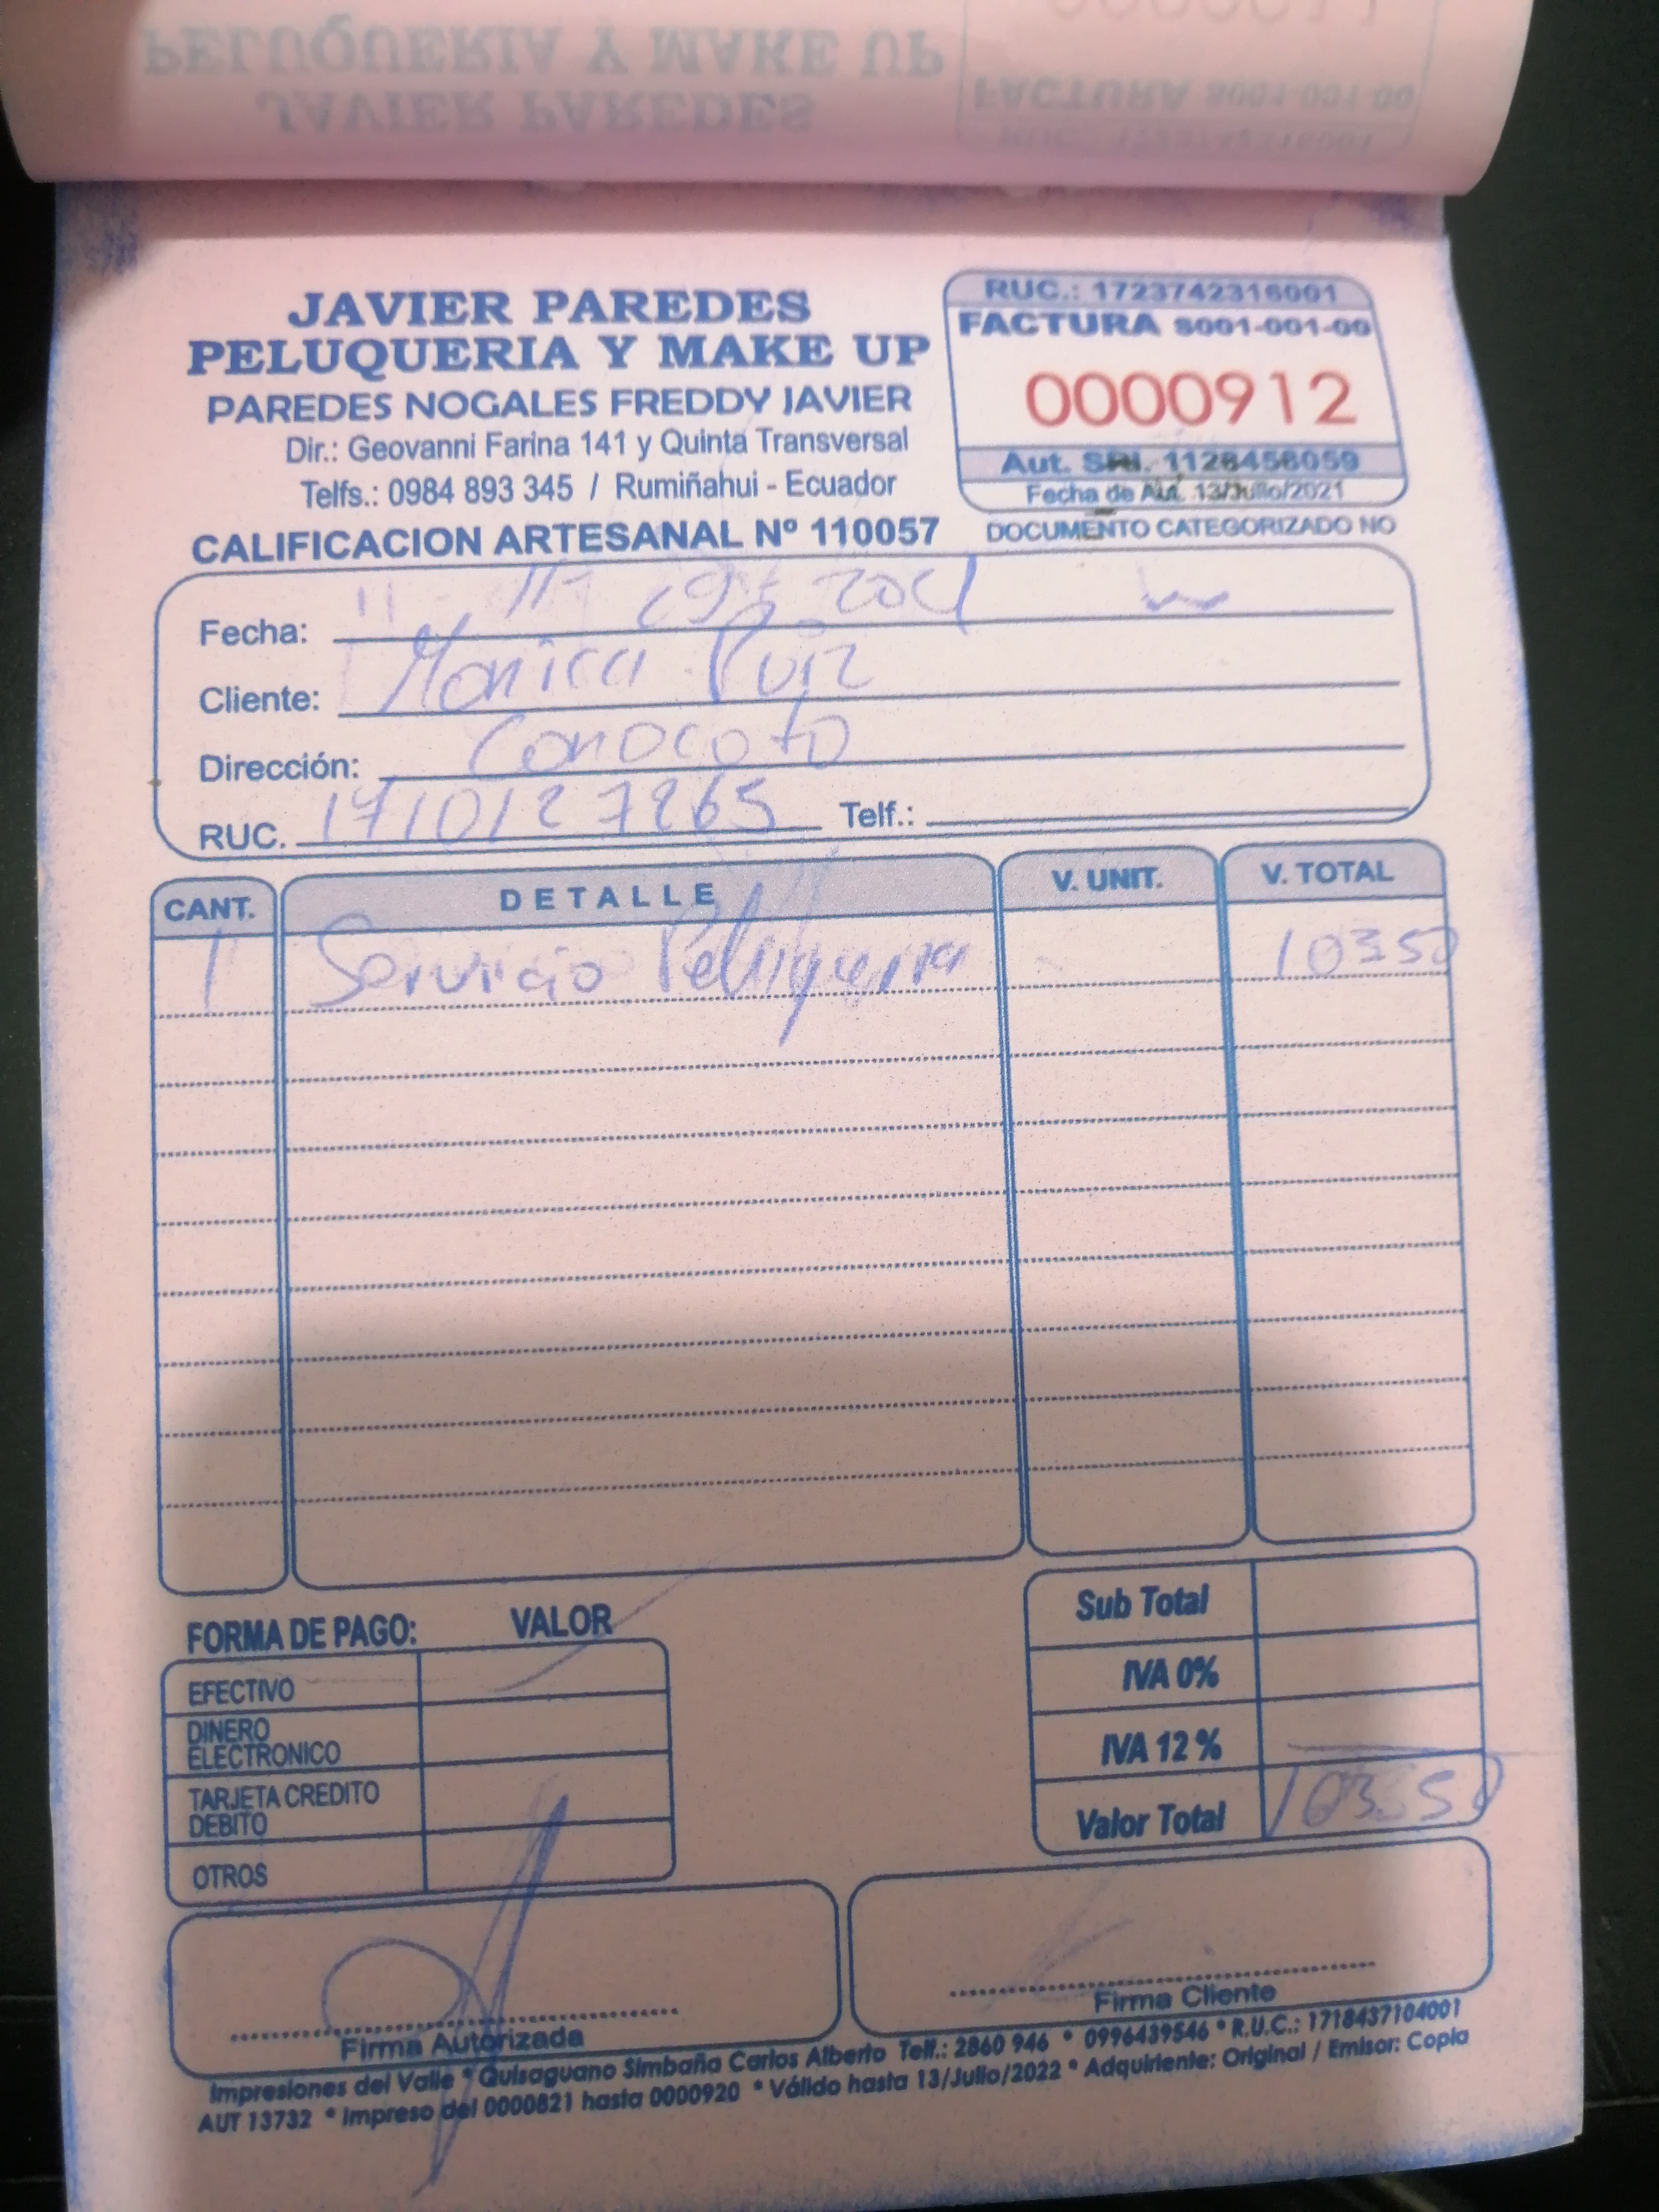 PELUQUERIA Y MAKE UP
JAVIER PAREDES
FACTURA S001-001-00
JAVIER PAREDES
PELUQUERIA Y MAKE UP
PAREDES NOGALES FREDDY JAVIER
Dir.: Geovanni Farina 141 y Quinta Transversal
Telfs.: 0984 893 345 / Rumiñahui - Ecuador
CALIFICACION ARTESANAL Nº 110057
RUC.: 1723742316001
FACTURA S001-001-00
0000912
Aut. SRI. 1128458059
Fecha de Aut. 13/Julio/2021
DOCUMENTO CATEGORIZADO NO
Fecha:
Cliente: Monica Ruiz
Dirección: Conocoto
RUC. 1710127265 Telf.:
CANT. DETALLE V. UNIT. V. TOTAL
1 Servicio Peluqueria 10350
FORMA DE PAGO: VALOR
EFECTIVO
DINERO ELECTRONICO
TARJETA CREDITO DEBITO
OTROS
Sub Total
IVA 0%
IVA 12 %
Valor Total 103.50
Firma Autorizada
Firma Cliente
Impresiones del Valle * Quisaguano Simbaña Carlos Alberto Telf.: 2860 946 * 0996439546 * R.U.C.: 1718437104001
AUT 13732 * Impreso del 0000821 hasta 0000920 * Válido hasta 13/Julio/2022 * Adquiriente: Original / Emisor: Copia